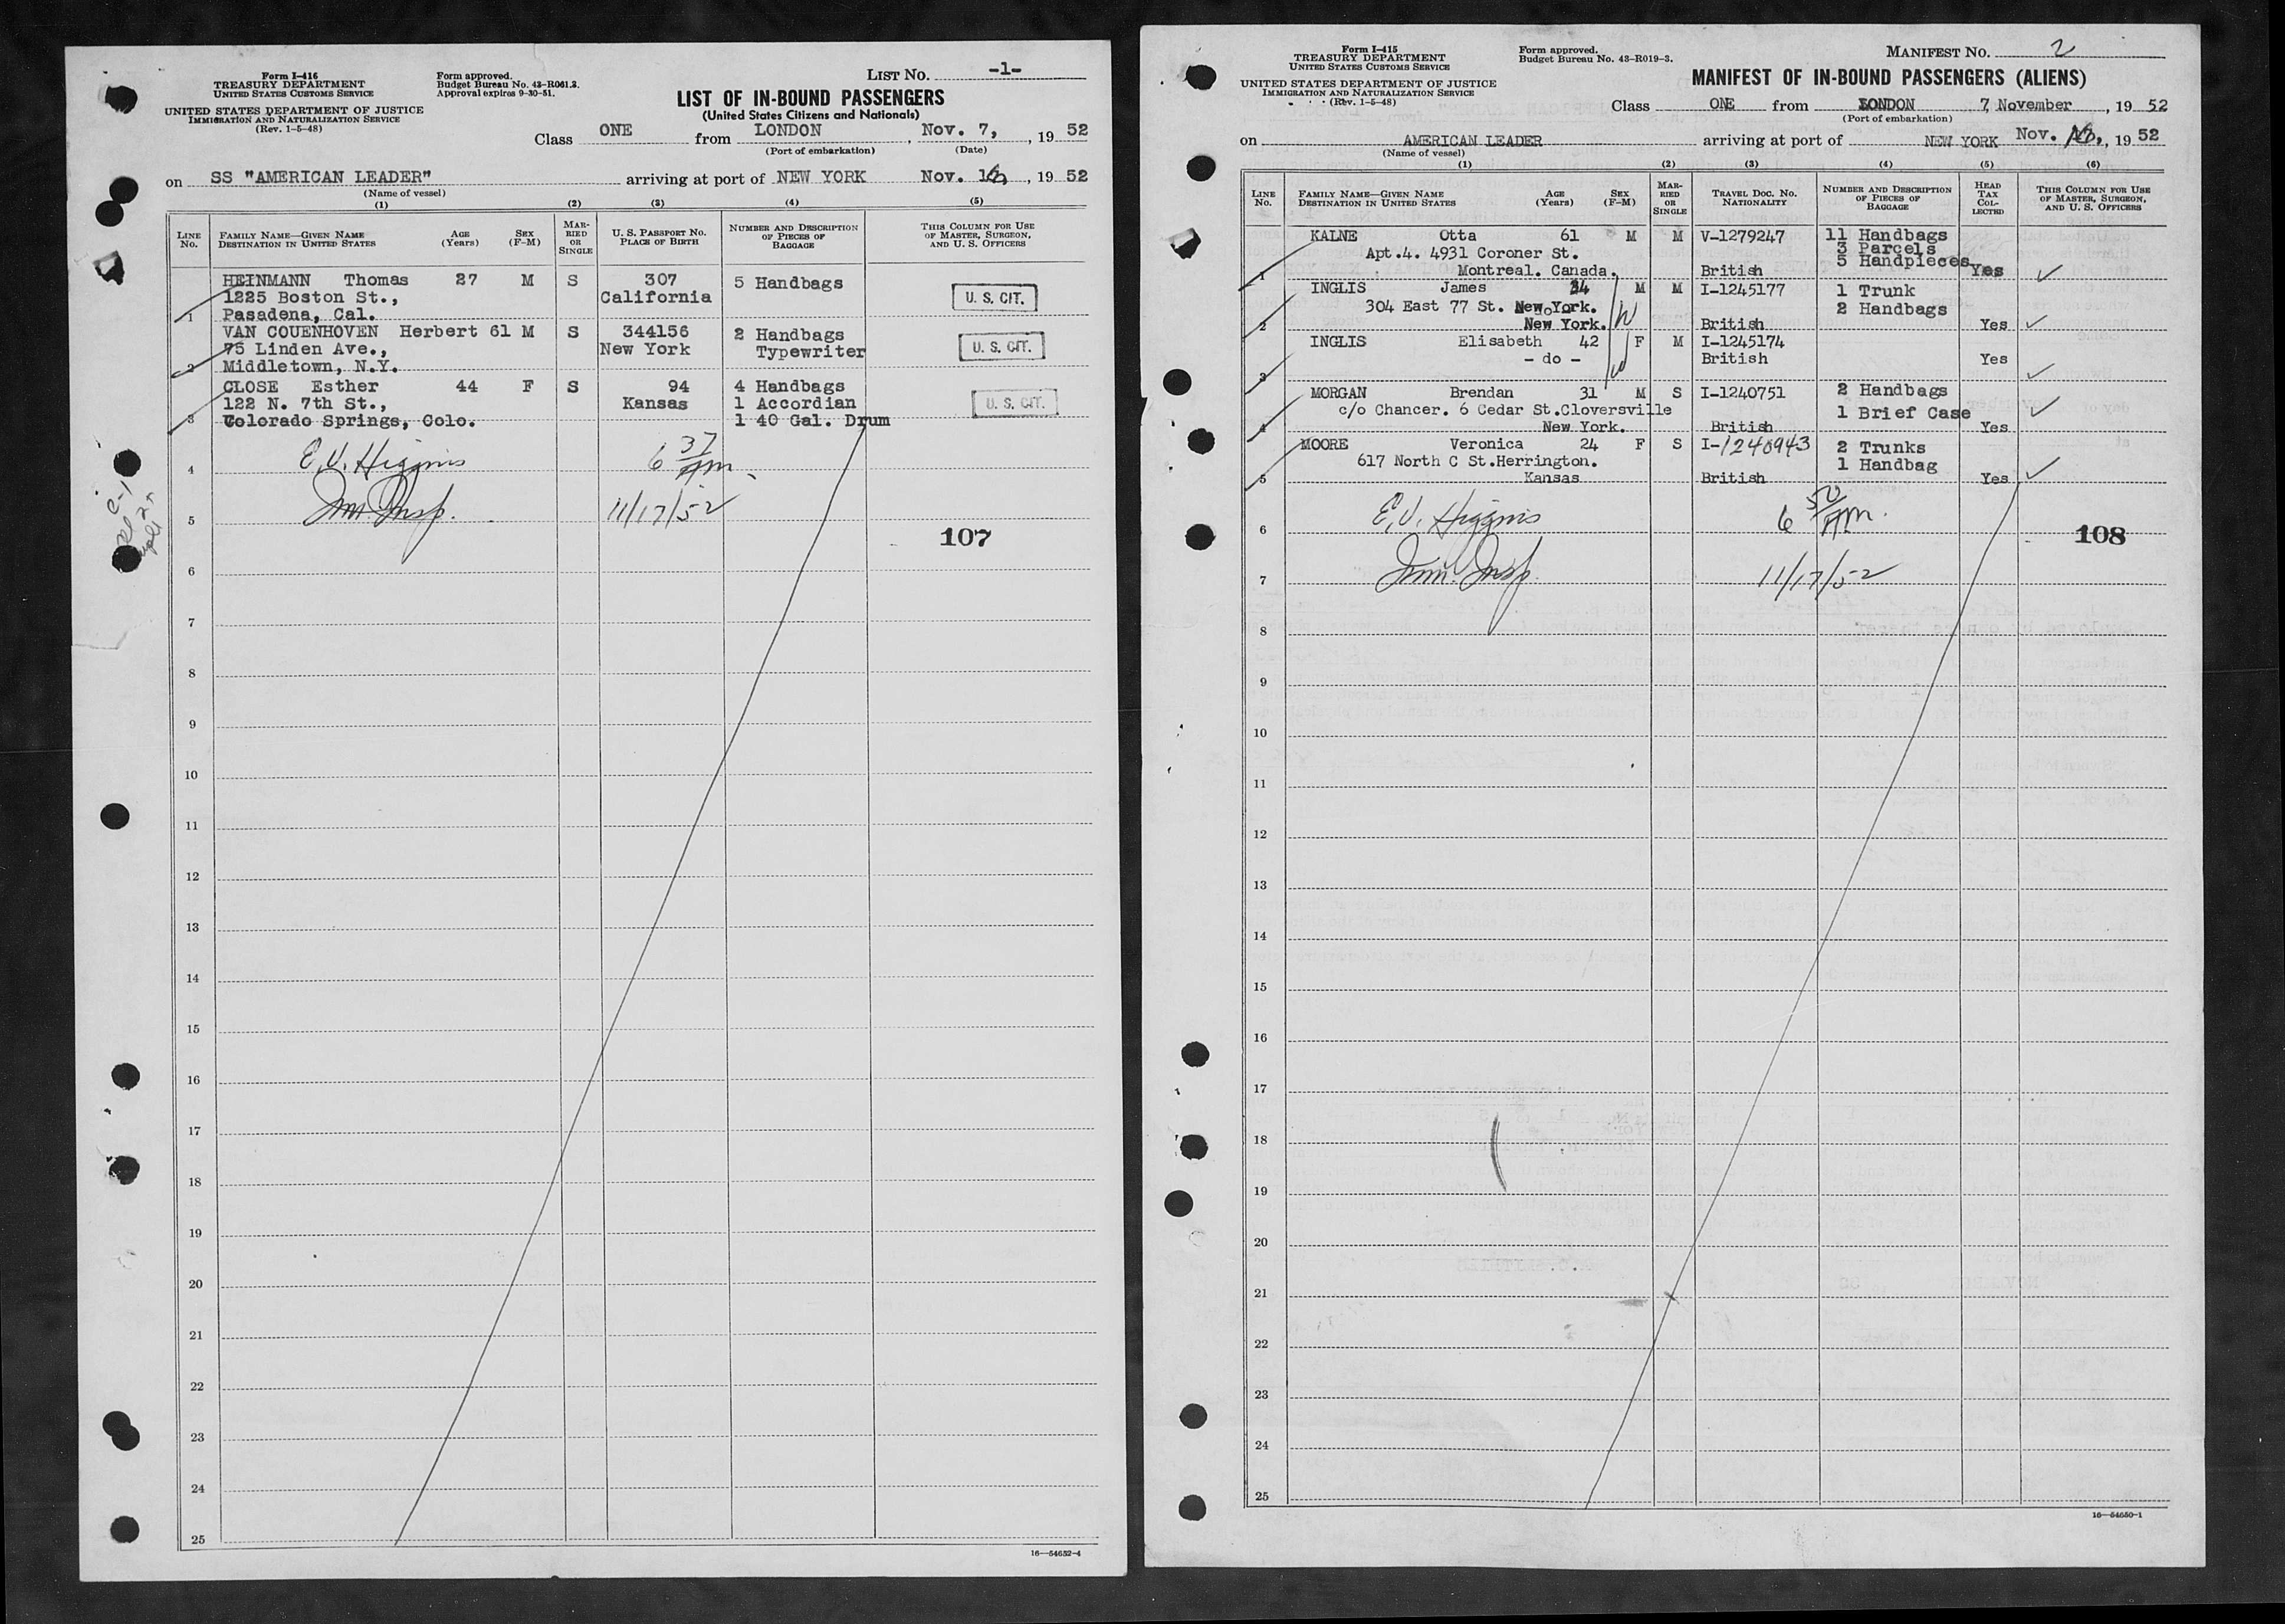 Form I-416
TREASURY DEPARTMENT
UNITED STATES CUSTOMS SERVICE
UNITED STATES DEPARTMENT OF JUSTICE
IMMIGRATION AND NATURALIZATION SERVICE
(Rev. 1-5-48)
Form approved.
Budget Bureau No. 43-R061.2.
Approval expires 9-30-51.
LIST NO. -1-
LIST OF IN-BOUND PASSENGERS
(United States Citizens and Nationals)
Class ONE from LONDON, Nov. 7, 1952
(Port of embarkation) (Date)
on SS "AMERICAN LEADER" arriving at port of NEW YORK Nov. , 1952
(Name of vessel)
(1) (2) (3) (4) (5)
LINE NO. FAMILY NAME—GIVEN NAME DESTINATION IN UNITED STATES AGE (Years) SEX (F-M) MARRIED OR SINGLE U. S. PASSPORT NO. PLACE OF BIRTH NUMBER AND DESCRIPTION OF PIECES OF BAGGAGE THIS COLUMN FOR USE OF MASTER, SURGEON, AND U. S. OFFICERS
HEINMANN Thomas 27 M S 307 5 Handbags
1225 Boston St., California U. S. CIT.
1 Pasadena, Cal.
VAN COUENHOVEN Herbert 61 M S 344156 2 Handbags
75 Linden Ave., New York Typewriter U. S. CIT.
2 Middletown, N.Y.
CLOSE Esther 44 F S 94 4 Handbags
122 N. 7th St., Kansas 1 Accordian U. S. CIT.
3 Colorado Springs, Colo. 1 40 Gal. Drum
4 E.V. Higgins 6 37 AM
5 Imm. Insp. 11/17/52
107
6
7
8
9
10
11
12
13
14
15
16
17
18
19
20
21
22
23
24
25
16—54652-4
Form I-415
TREASURY DEPARTMENT
UNITED STATES CUSTOMS SERVICE
UNITED STATES DEPARTMENT OF JUSTICE
IMMIGRATION AND NATURALIZATION SERVICE
(Rev. 1-5-48)
Form approved.
Budget Bureau No. 43-R019-3.
MANIFEST NO. 2
MANIFEST OF IN-BOUND PASSENGERS (ALIENS)
Class ONE from LONDON 7 November, 1952
(Port of embarkation)
on AMERICAN LEADER arriving at port of NEW YORK Nov. , 1952
(Name of vessel)
(1) (2) (3) (4) (5) (6)
LINE NO. FAMILY NAME—GIVEN NAME DESTINATION IN UNITED STATES AGE (Years) SEX (F-M) MARRIED OR SINGLE TRAVEL DOC. NO. NATIONALITY NUMBER AND DESCRIPTION OF PIECES OF BAGGAGE HEAD TAX COLLECTED THIS COLUMN FOR USE OF MASTER, SURGEON, AND U. S. OFFICERS
KALNE Otta 61 M M V-1279247 11 Handbags
Apt.4. 4931 Coroner St. 3 Parcels
1 Montreal. Canada. British 5 Handpieces Yes
INGLIS James 34 M M I-1245177 1 Trunk
304 East 77 St. New York. 2 Handbags
2 New York. British Yes
INGLIS Elisabeth 42 F M I-1245174
3 - do - British Yes
MORGAN Brendan 31 M S I-1240751 2 Handbags
c/o Chancer. 6 Cedar St.Cloversville 1 Brief Case
4 New York. British Yes
MOORE Veronica 24 F S I-1240943 2 Trunks
617 North C St.Herrington. 1 Handbag
5 Kansas British Yes
6 E.V. Higgins 6 50 AM.
108
7 Imm. Insp. 11/17/52
8
9
10
11
12
13
14
15
16
17
18
19
20
21
22
23
24
25
16—54650-1